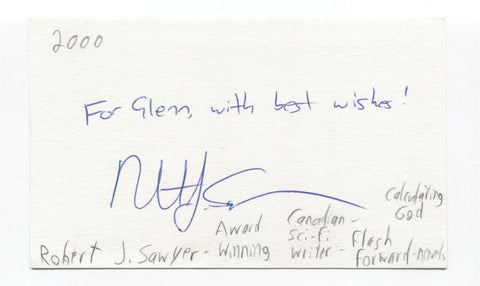 2000
For Glenn, with best wishes!
Robert J. Sawyer - Award Winning Canadian - Sci-fi writer - Calculating God Flash forward - novels